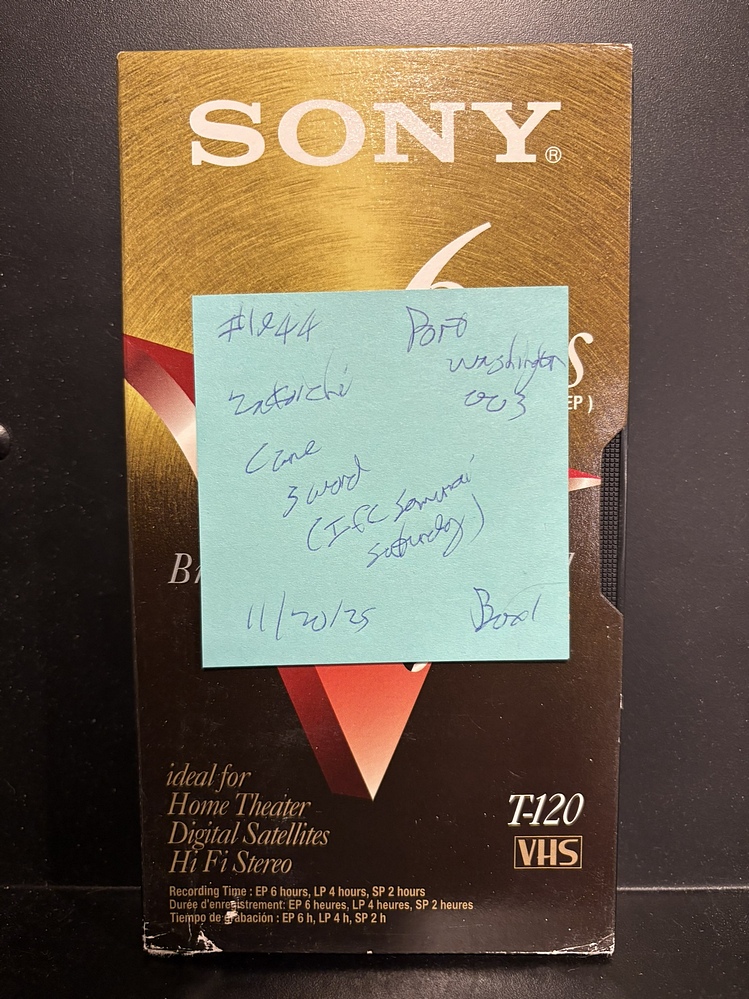 SONY®
6
S
#1844 Port
Washington
EP )
Zatoichi 003
Cane
Sword
(Ifc Samurai
Saturday)
B
11/20/25 Box1
ideal for
Home Theater
Digital Satellites
Hi Fi Stereo
T-120
VHS
Recording Time : EP 6 hours, LP 4 hours, SP 2 hours
Durée d'enregistrement: EP 6 heures, LP 4 heures, SP 2 heures
Tiempo de grabación : EP 6 h, LP 4 h, SP 2 h